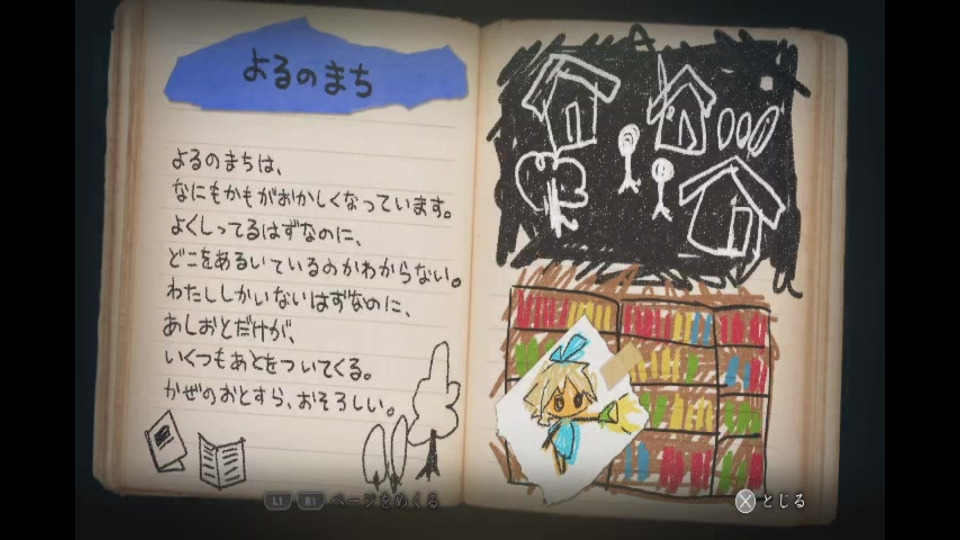 よるのまち
よるのまちは、
なにもかもがおかしくなっています。
よくしってるはずなのに、
どこをあるいているのかわからない。
わたししかいないはずなのに、
あしおとだけが、
いくつもあとをついてくる。
かぜのおとすら、おそろしい。
L1 R1 ページをめくる
とじる